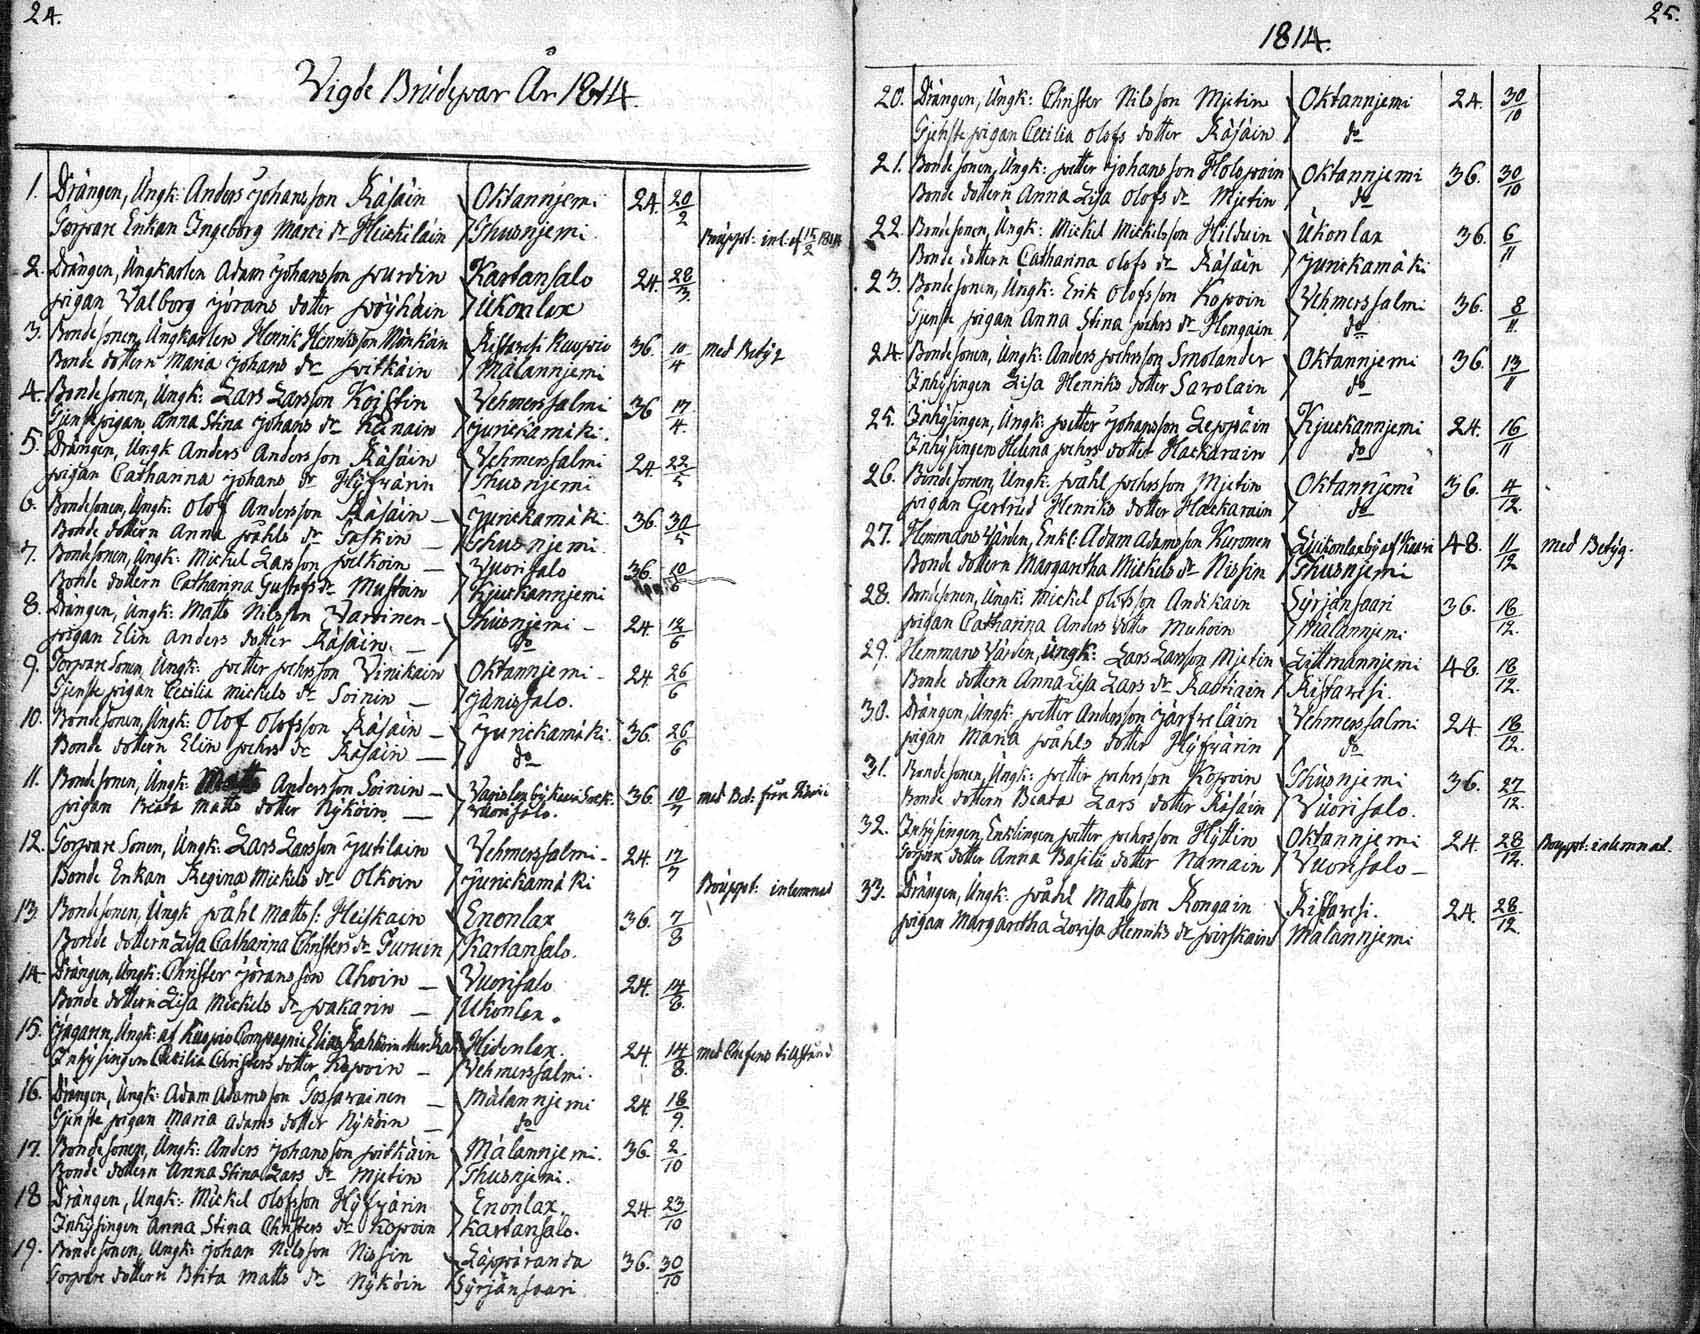 24.
Vigde Brudepar År 1814.
1. Drängen, Ungk: Anders Johansson Räsäin Oktannjemi 24. 20/2
Torpare Enkan Ingeborg Marci dr Heickiläin Thusnjemi. Bouppt: inl. af 15/2 1814
2. Drängen, Ungkarlen Adam Johansson Purdin Kartansalo 24. 28/3
pigan Valborg Jörans dotter Pöyhäin Ukonlax
3. Bondesonen, Ungkarlen Henrik Henriksson Mönkäin Kuopio 36. 10/4 med Betyg
Bonde dottern Maria Johans dr Pitkäin Mälannjemi
4. Bondesonen, Ungk: Lars Larsson Koistin Vehmersalmi 36 17/4.
Tjenstepigan Anna Stina Johans dr Jurickamäki.
5. Drängen, Ungk Anders Andersson Räsäin Vehmersalmi 24. 22/5
pigan Catharina Johans dr Hyfvärin Thusnjemi
6. Bondesonen, Ungk: Olof Andersson Räsäin Jurickamäki 36. 30/5
Bonde dottern Anna Påhls dr Thusnjemi
7. Bondesonen, Ungk: Mickel Larsson Vuorisalo 36. 10/6
Bonde dottern Catharina Gustafs dr Mustoin Kjurkannjemi
8. Drängen, Ungk: Matts Nilsson Thusnjemi 24. 12/6
pigan Elin Anders dotter Räsäin do
9. Torparesonen, Ungk: Petter Pehrsson Vinikain Oktannjemi 24. 26/6
Tjenste pigan Cecilia Mickels dr Soinin Jänissalo.
10. Bondesonen, Ungk: Olof Olofsson Räsäin Jurickamäki 36. 26/6
Bonde dottern Elin Pehrs dr Räsäin do
11. Bondesonen, Ungk: Matts Andersson Soinin 36. 10/7 med Bet: från
pigan Beata Matts dotter Nyköin Vuorisalo.
12. Torpare Sonen, Ungk: Lars Larsson Jutilain Vehmersalmi 24. 17/7
Bonde Enkan Regina Mickels dr Olkoin Jurickamäki Bouppt: inlemnad
13. Bondesonen, Ungk Påhl Matts: Heiskain Enonlax 36. 7/8
Bonde dottern Lisa Catharina Christers dr Turuin Kartansalo.
14. Drängen, Ungk: Christer Jöransson Ahoin Vuorisalo 24. 14/8.
Bonde dottern Lisa Mickels dr Pakarin Ukonlax.
15. Jägaren, Ungk: af Kuopio Compagnie Elias Hidenlax. 24. 14/8. med Chefens tillstånd
Inhysingen Cecilia Christers dotter Kopoin Vehmersalmi.
16. Drängen, Ungk: Adam Adamsson Tossavainen Mälannjemi 24. 18/9.
Tjenste pigan Maria Adams dotter Nyköin do
17. Bondesonen, Ungk: Anders Johansson Pitkäin Mälannjemi. 36. 2/10
Bonde dottern Anna Stina Lars dr Mjetin Thusnjemi.
18 Drängen, Ungk: Mickel Olofsson Hyfvärin Enonlax. 24. 23/10
Inhysingen Anna Stina Christers dr Kopoin Kartansalo.
19. Bondesonen, Ungk: Johan Nilsson Nissin Läppäranda 36. 30/10
Torpare dottern Brita Matts dr Nyköin Syrjänsaari
25.
1814.
20. Drängen, Ungk: Christer Nilsson Mjetin Oktannjemi 24. 30/10
Tjenste pigan Cecilia Olofs dotter Räsäin do
21. Bondesonen, Ungk: Petter Johansson Holopain Oktannjemi 36. 30/10
Bonde dottern Anna Lisa Olofs dr Mjetin do
22. Bondesonen, Ungk: Mickel Mickelsson Hilduin Ukonlax 36. 6/11
Bonde dottern Catharina Olofs dr Räsäin Jurickamäki
23. Bondesonen, Ungk: Erik Olofsson Kopoin Vehmersalmi 36. 8/11.
Tjenste pigan Anna Stina Pehrs dr Hongain do
24. Bondesonen, Ungk: Anders Pehrsson Smolander Oktannjemi 36. 13/11
Inhysingen Lisa Henriks dotter Savolain do
25. Inhysingen, Ungk: Petter Johansson Leppäin Kjurkannjemi 24. 16/11
Inhysingen Helena Pehrs dotter Hackarain do
26. Bondesonen, Ungk: Påhl Pehrsson Mjetin Oktannjemi 36. 4/12.
pigan Gertrud Henriks dotter Hackarain do
27. Hemmans Värden, Enkl: Adam Adamsson Kuronen 48. 11/12 med Betyg.
Bonde dottern Margaretha Mickels dr Nissin Thusnjemi
28. Bondesonen, Ungk: Mickel Olofsson Andikain Syrjänsaari 36. 18/12.
pigan Catharina Anders dotter Muhoin Mälannjemi
29. Hemmans Värden, Ungk: Lars Larsson Mjetin Littmannjemi 48. 18/12.
Bonde dottern Anna Lisa Lars dr Rautiain Ristavesi.
30. Drängen, Ungk: Petter Andersson Järfveläin Vehmersalmi 24 18/12.
pigan Maria Påhls dotter Hyfvärin do
31. Bondesonen, Ungk: Petter Pehrsson Kopoin Thusnjemi 36. 27/12.
Bonde dottern Beata Lars dotter Räsäin Vuorisalo.
32. Inhysingen, Enklingen Petter Pehrsson Hyttin Oktannjemi 24. 28/12. Bouppt: inlemnad.
Torpare dotter Anna Basilii dotter Nämain Vuorisalo
33. Drängen, Ungk: Påhl Mattsson Rongain Ristavesi. 24. 28/12.
pigan Margaretha Lovisa Henriks dr Pirskain Mälannjemi